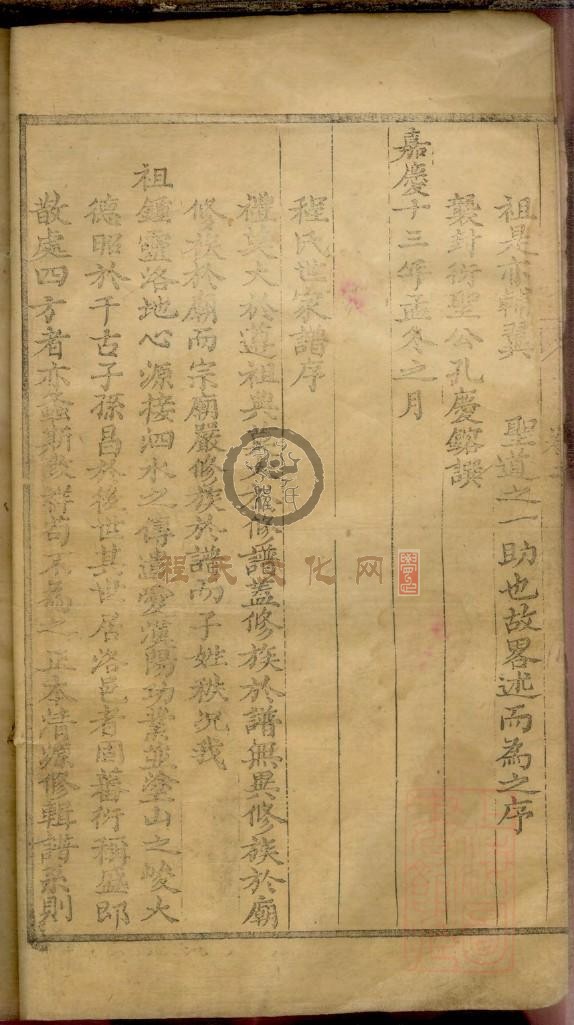 祖是亦輔翼　聖道之一助也故畧述而為之序
襲封衍聖公孔慶鎔譔
嘉慶十三年孟冬之月
程氏世家譜序
禮莫大於尊祖與莫大於修譜蓋修族於譜無異修族於廟
修族於廟而宗廟嚴修族於譜而子姓秩況我
祖鍾靈洛地心源接泗水之傳遺愛漢陽功業並塗山之峻大
德昭於千古子孫昌於後世其世居洛邑者固蕃衍稱盛即
散處四方者亦螽斯衆苟不為之正本清源修輯譜系則
程氏文化网